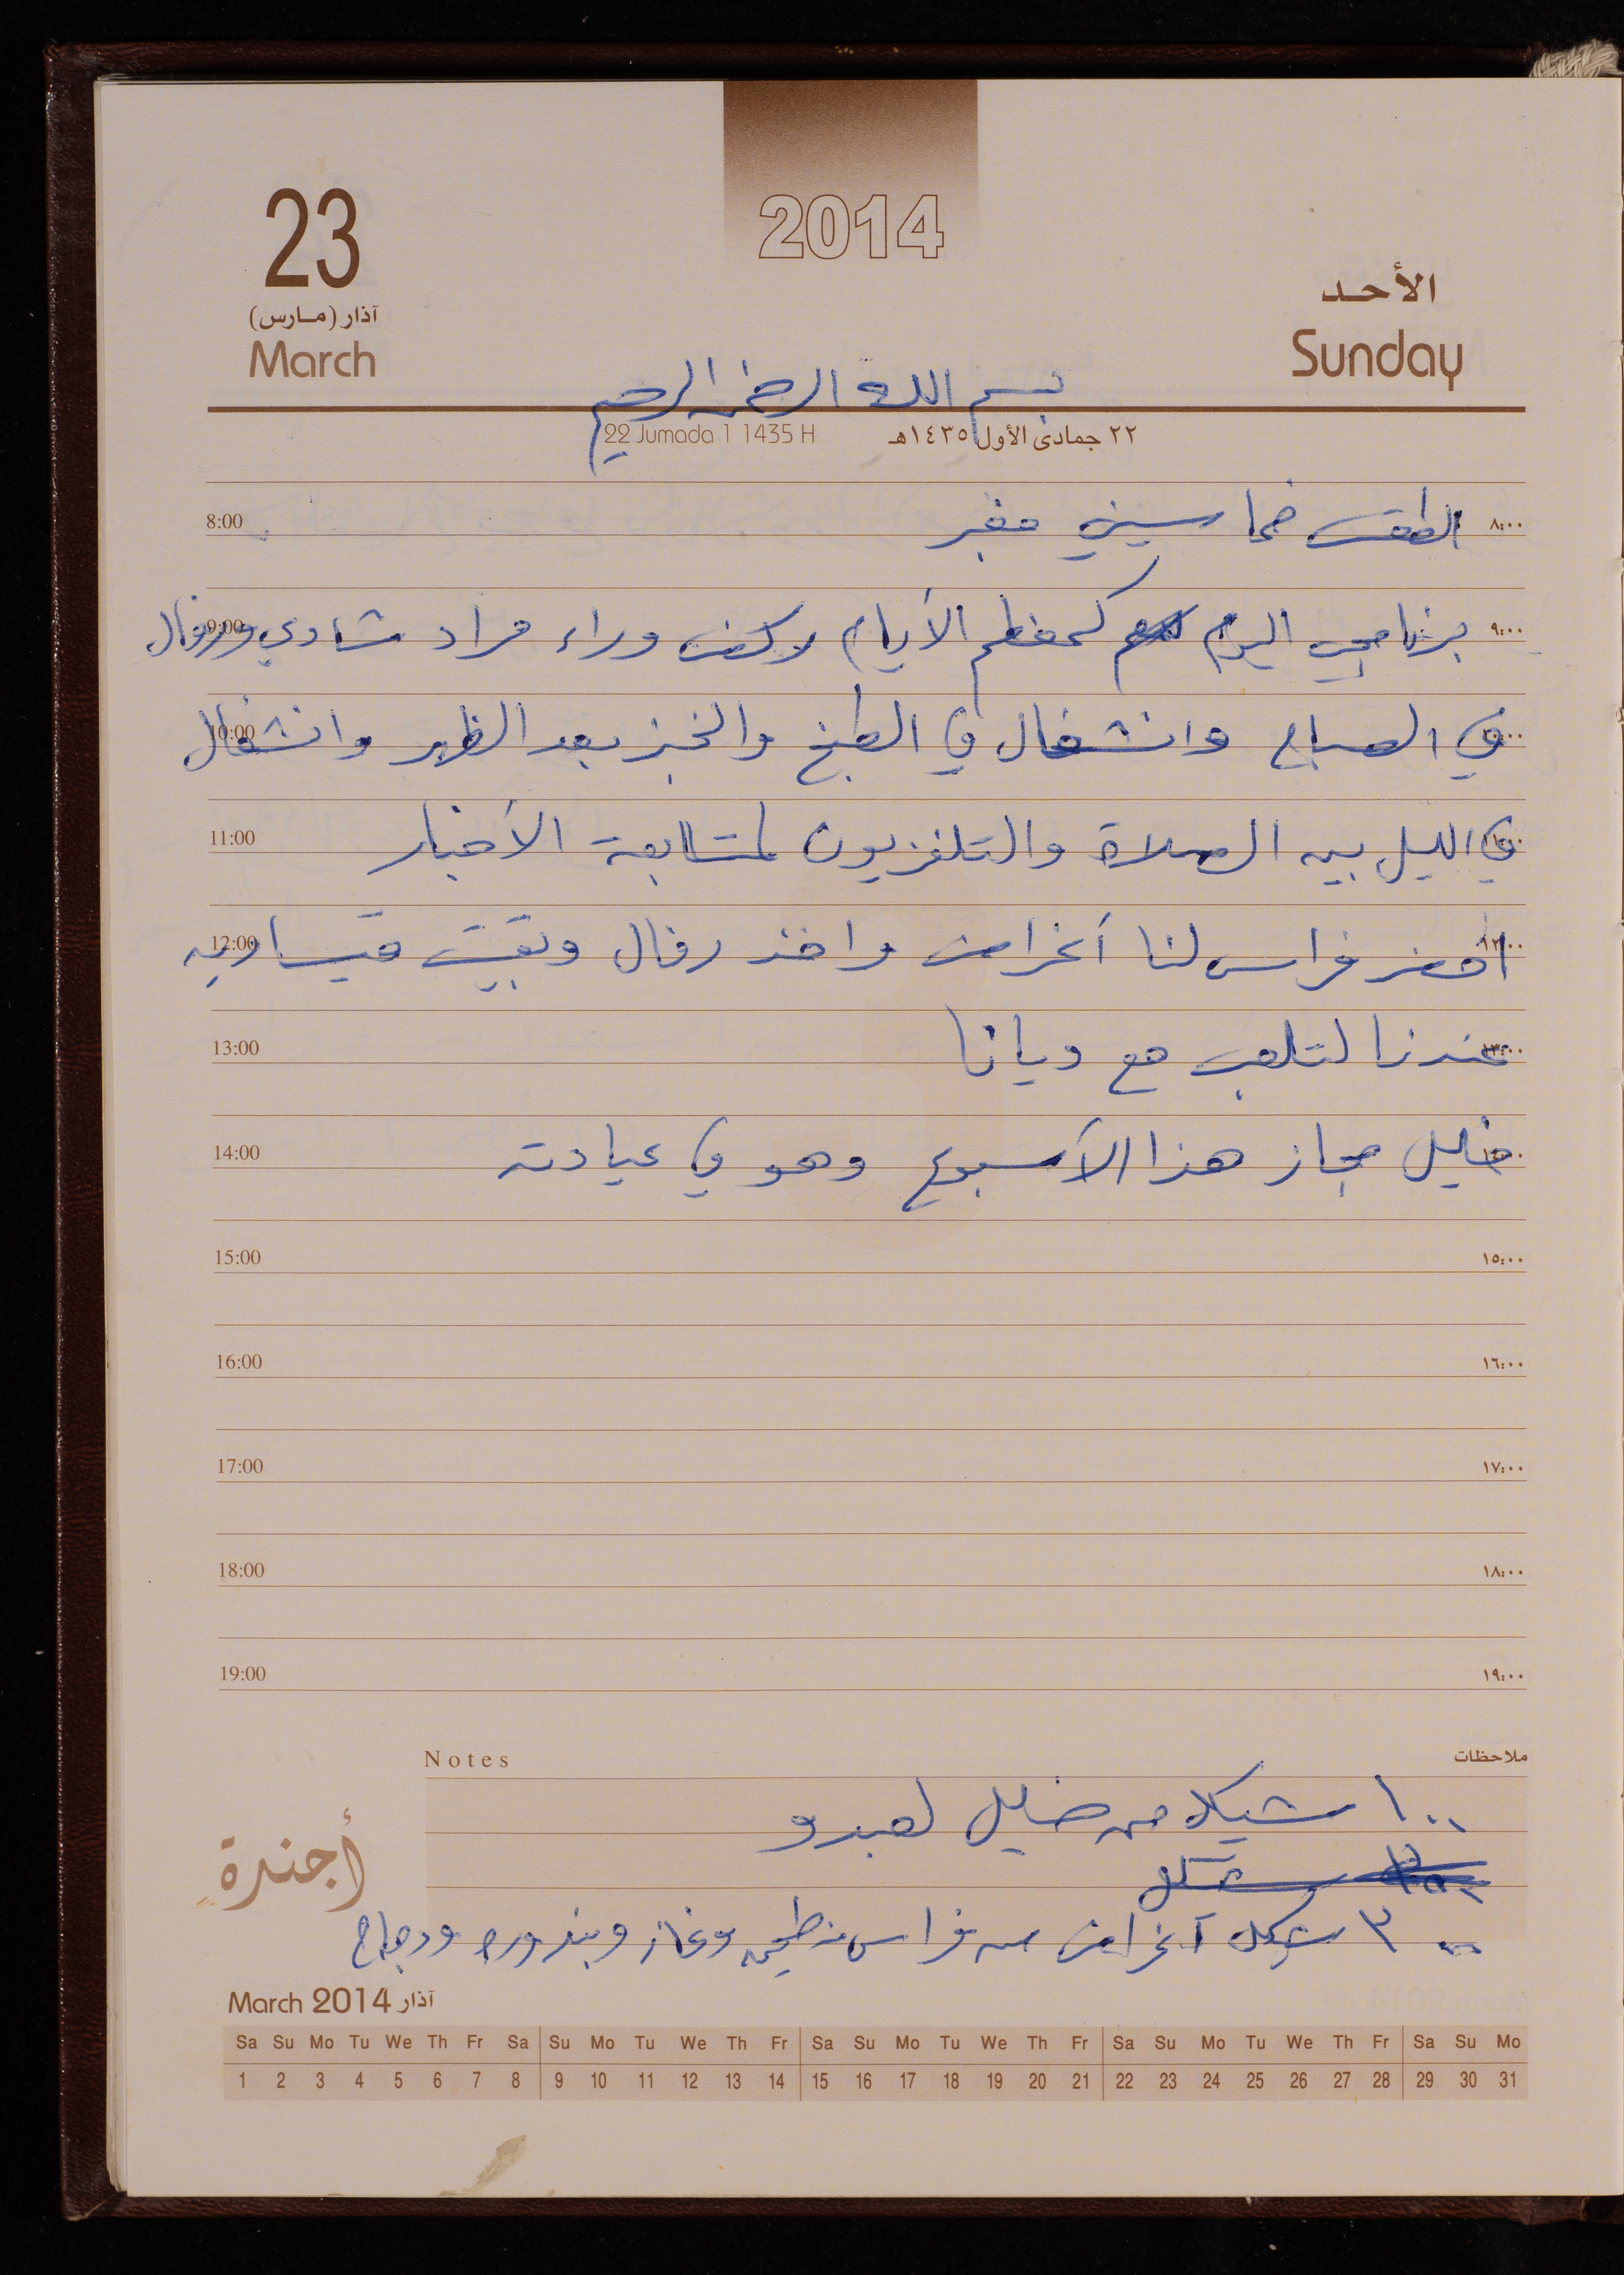 2014
23
آذار (مارس)
March
الأحد
Sunday
بسم الله الرحمن الرحيم
22 Jumada 1 1435 H ٢٢ جمادى الأول ١٤٣٥هـ
8:00 الطقس خماسيني مغبر ٨:٠٠
9:00 برنامجي اليوم كمعظم الأيام ركض وراء مراد شادي ورفال ٩:٠٠
10:00 في الصباح وانشغال في الطبخ والخبز بعد الظهر وانشغال ١٠:٠٠
11:00 في الليل بين الصلاة والتلفزيون لمتابعة الأخبار ١١:٠٠
12:00 أحضر فراس لنا أغراض واخذ رفال وبقيت ميسارين ١٢:٠٠
13:00 عندنا لتلعب مع ديانا ١٣:٠٠
14:00 خليل مجاز هذا الأسبوع وهو في عيادته ١٤:٠٠
15:00 ١٥:٠٠
16:00 ١٦:٠٠
17:00 ١٧:٠٠
18:00 ١٨:٠٠
19:00 ١٩:٠٠
Notes ملاحظات
١٠٠ شيكل من خليل لعبدو
شيكل
٣٠٠ شيكل أغراض من فراس وغاز وبندوره ودجاج
أجندة
March 2014 آذار
Sa Su Mo Tu We Th Fr Sa Su Mo Tu We Th Fr Sa Su Mo Tu We Th Fr Sa Su Mo Tu We Th Fr Sa Su Mo
1 2 3 4 5 6 7 8 9 10 11 12 13 14 15 16 17 18 19 20 21 22 23 24 25 26 27 28 29 30 31